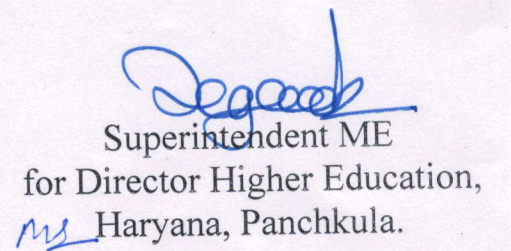 Superintendent ME
for Director Higher Education,
Haryana, Panchkula.